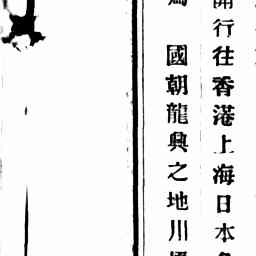 行往香港上海日本
國朝龍興之地川